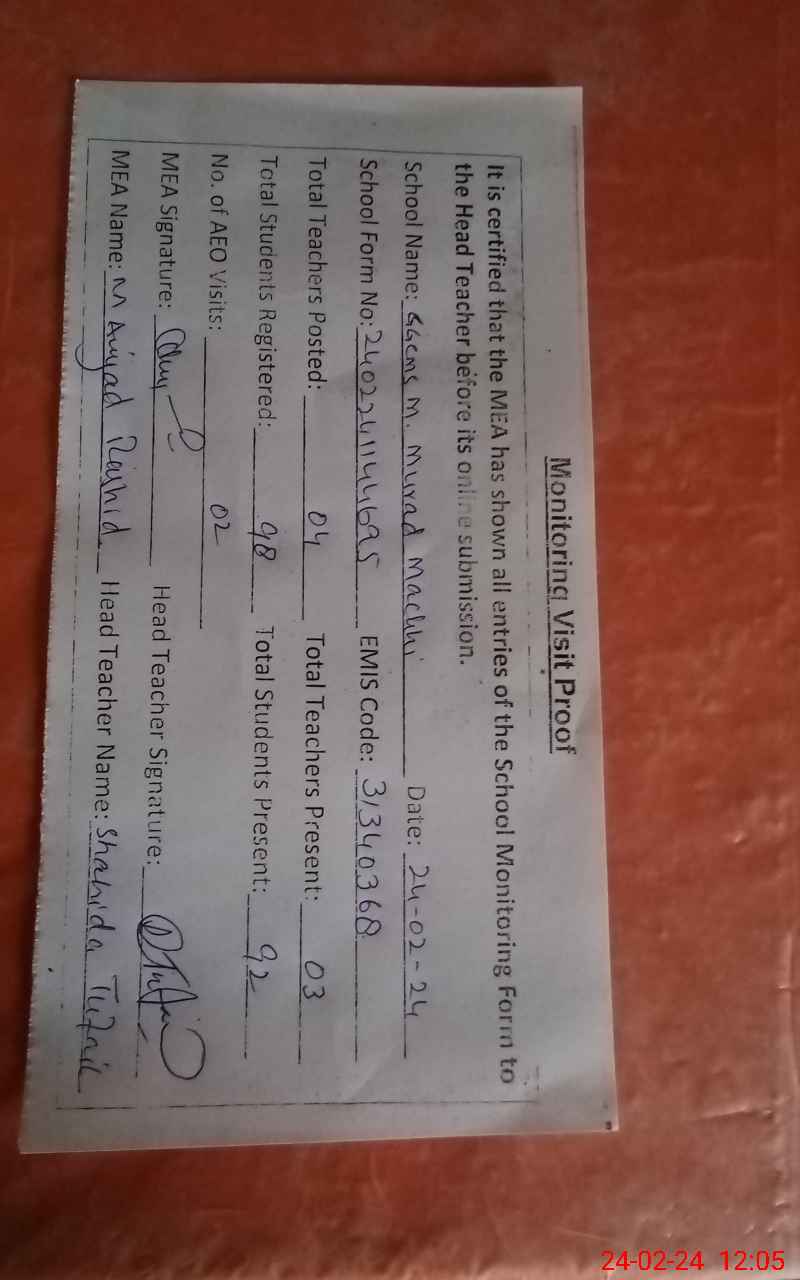 Monitoring Visit Proof
It is certified that the MEA has shown all entries of the School Monitoring Form to
the Head Teacher before its online submission.
School Name: GGCMS M. Murad Machhi Date: 24-02-24
School Form No: 24022411441695 EMIS Code: 31340368
Total Teachers Posted: 04 Total Teachers Present: 03
Total Students Registered: 98 Total Students Present: 92
No. of AEO Visits: 02
MEA Signature: Head Teacher Signature:
MEA Name: M Amjad Rashid Head Teacher Name: Shahida Tufail
24-02-24 12:05